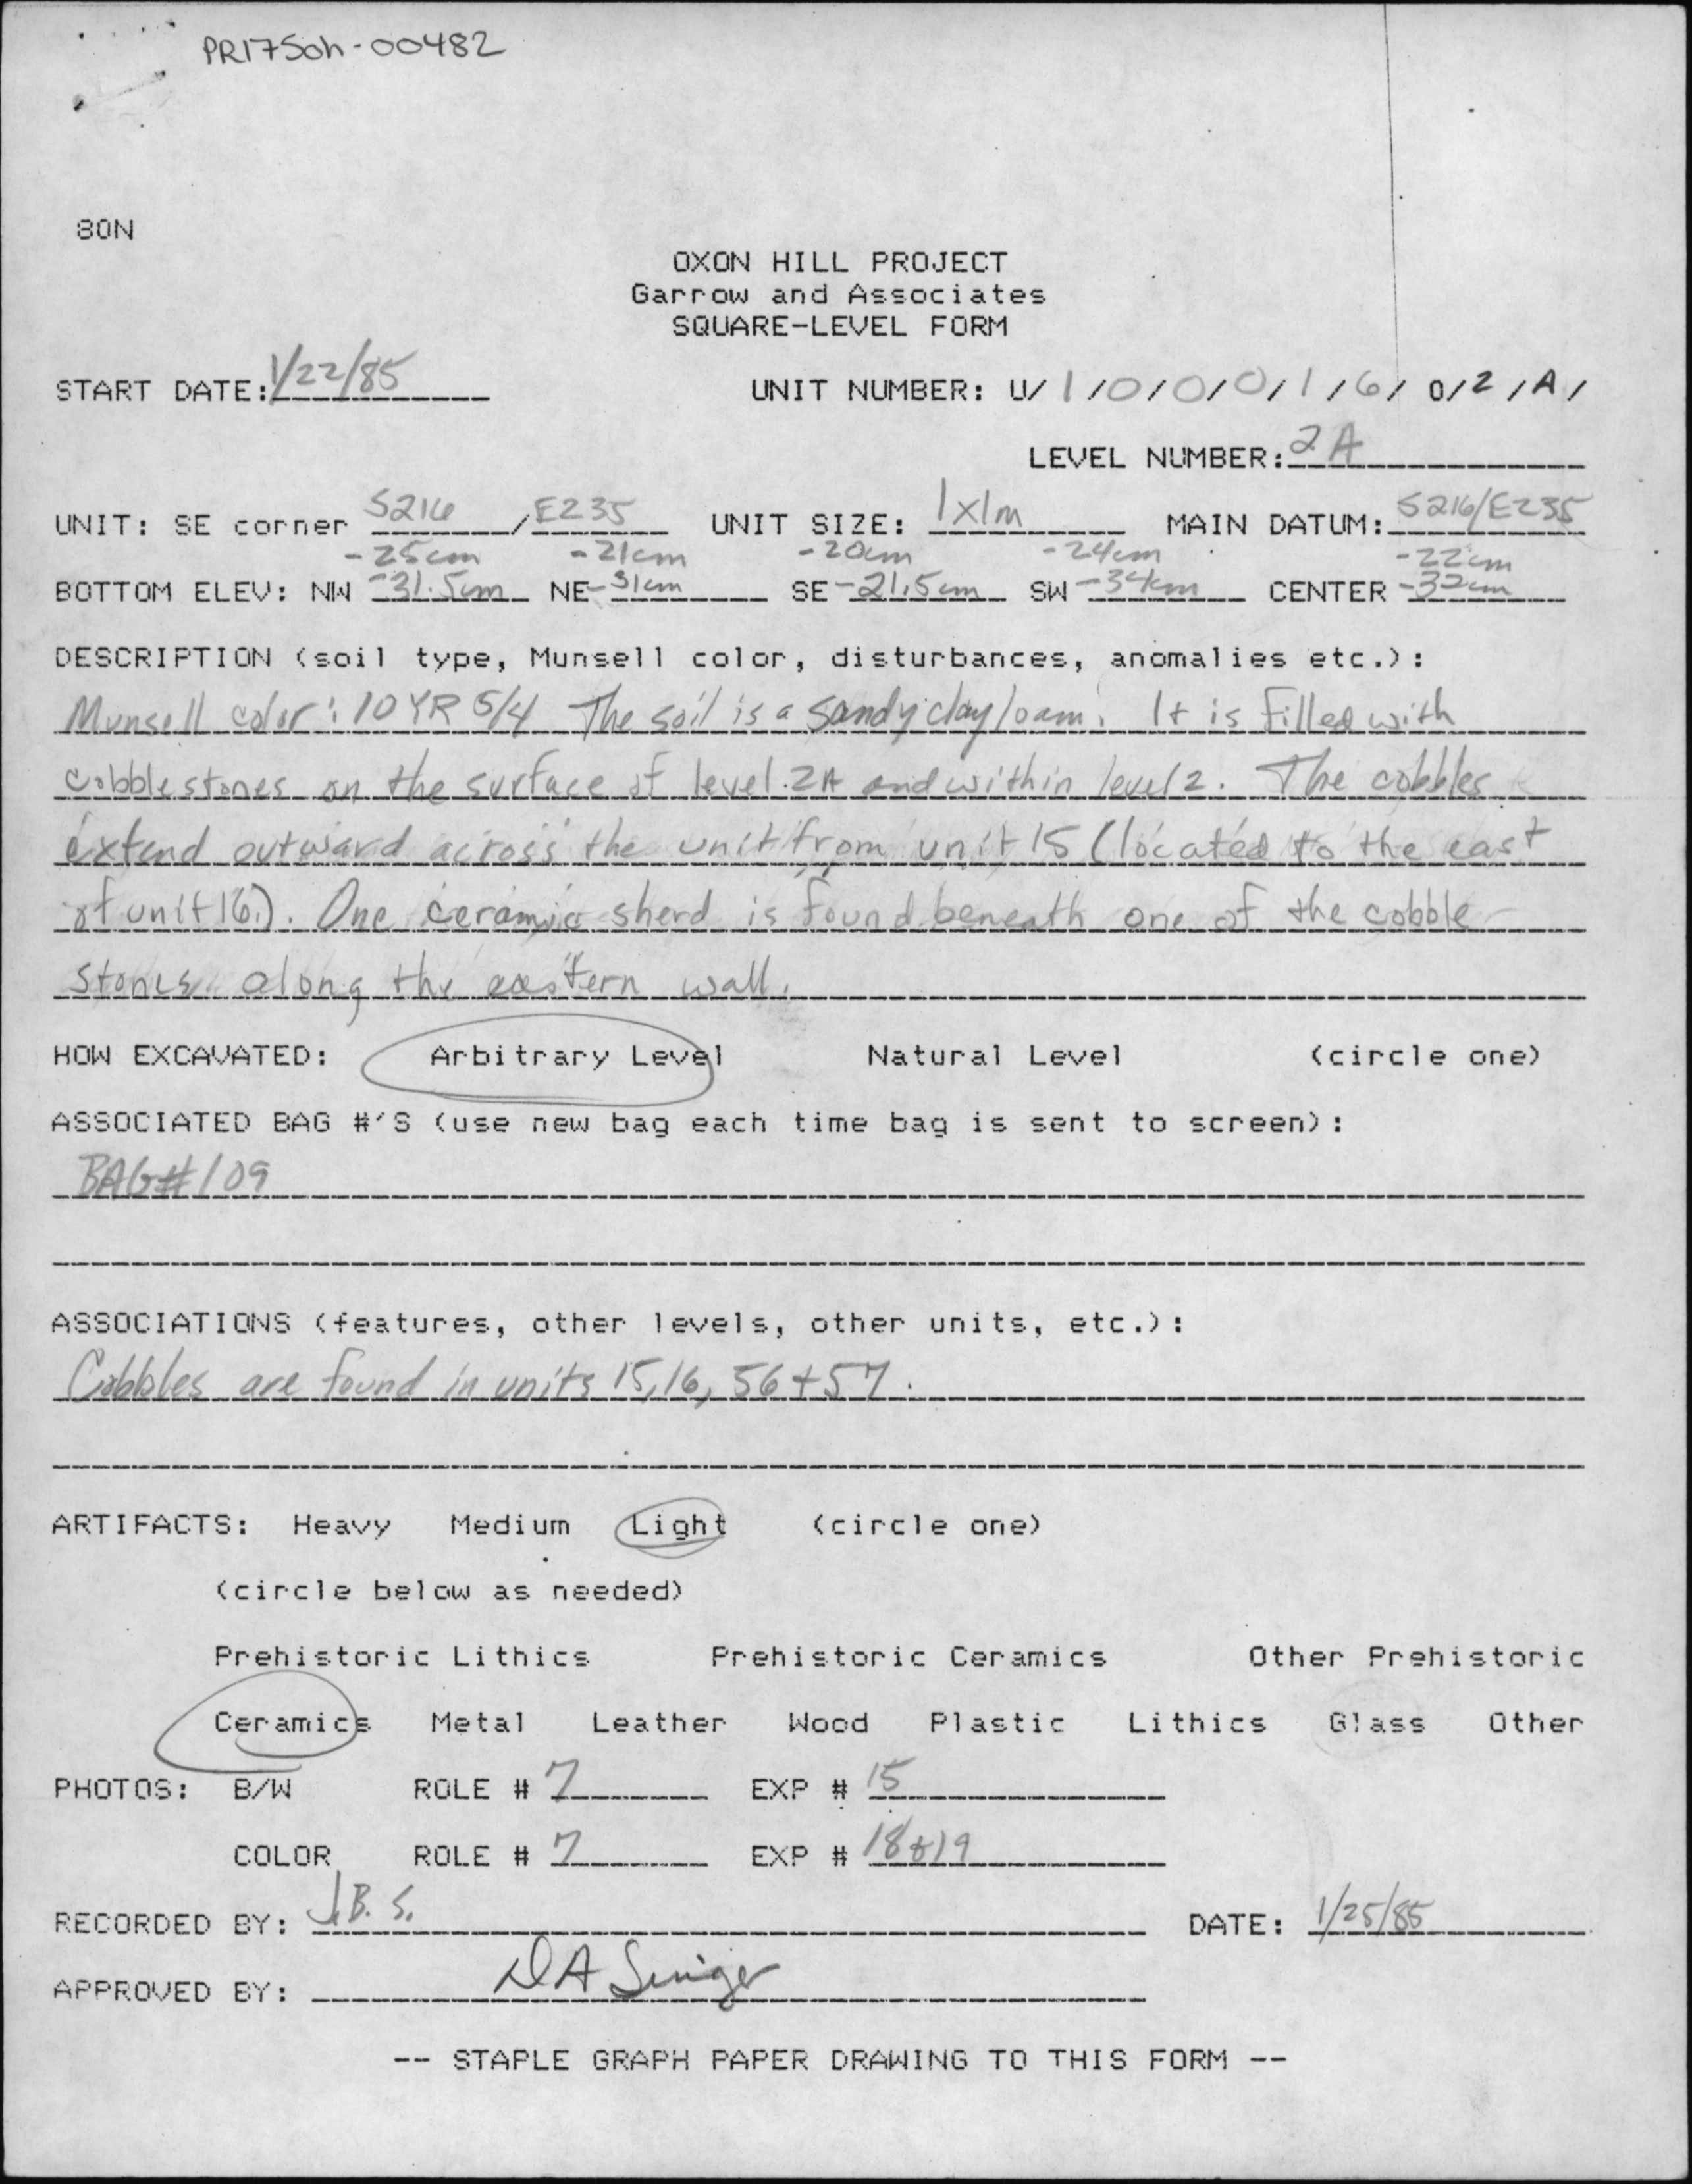 PR175oh-00482
80N
OXON HILL PROJECT
Garrow and Associates
SQUARE-LEVEL FORM
START DATE: 1/22/85 UNIT NUMBER: U/ 1 /0/0/0/1/6/ 0/2/A/
LEVEL NUMBER: 2A
UNIT: SE corner S216/E235 UNIT SIZE: 1x1m MAIN DATUM: S216/E235
-25cm -21cm -20cm -24cm -22cm
BOTTOM ELEV: NW -31.5cm NE -31cm SE -21.5cm SW -34cm CENTER -32cm
DESCRIPTION (soil type, Munsell color, disturbances, anomalies etc.):
Munsell color: 10 YR 5/4 The soil is a sandy clay loam. It is filled with
cobblestones on the surface of level 2A and within level 2. The cobbles
extend outward across the unit from unit 15 (located to the east
of unit 16.). One ceramic sherd is found beneath one of the cobble
stones along the eastern wall.
HOW EXCAVATED: Arbitrary Level Natural Level (circle one)
ASSOCIATED BAG #'S (use new bag each time bag is sent to screen):
BAG# 109
ASSOCIATIONS (features, other levels, other units, etc.):
Cobbles are found in units 15, 16, 56 + 57.
ARTIFACTS: Heavy Medium Light (circle one)
(circle below as needed)
Prehistoric Lithics Prehistoric Ceramics Other Prehistoric
Ceramics Metal Leather Wood Plastic Lithics Glass Other
PHOTOS: B/W ROLE # 7 EXP # 15
COLOR ROLE # 7 EXP # 18+19
RECORDED BY: J.B.S. DATE: 1/25/85
APPROVED BY: DA Singer
-- STAPLE GRAPH PAPER DRAWING TO THIS FORM --